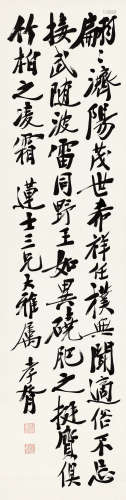 翩翩濟陽茂世希祥任樸無聞適俗不忌
接武隨波雷同野王如異磽肥之挺質俱
竹柏之凌霜 蓮士三兄大雅屬 孝胥